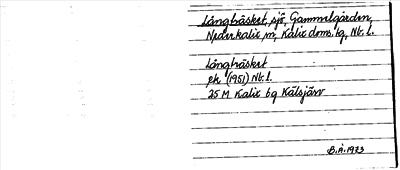 Långträsket, sjö, Gammelgården,
Nederkalix sn, Kalix doms. tg, Nb. l.
Långträsket
ek (1951) Nb. l.
25 M Kalix bg Kälsjärv
B.Å. 1973